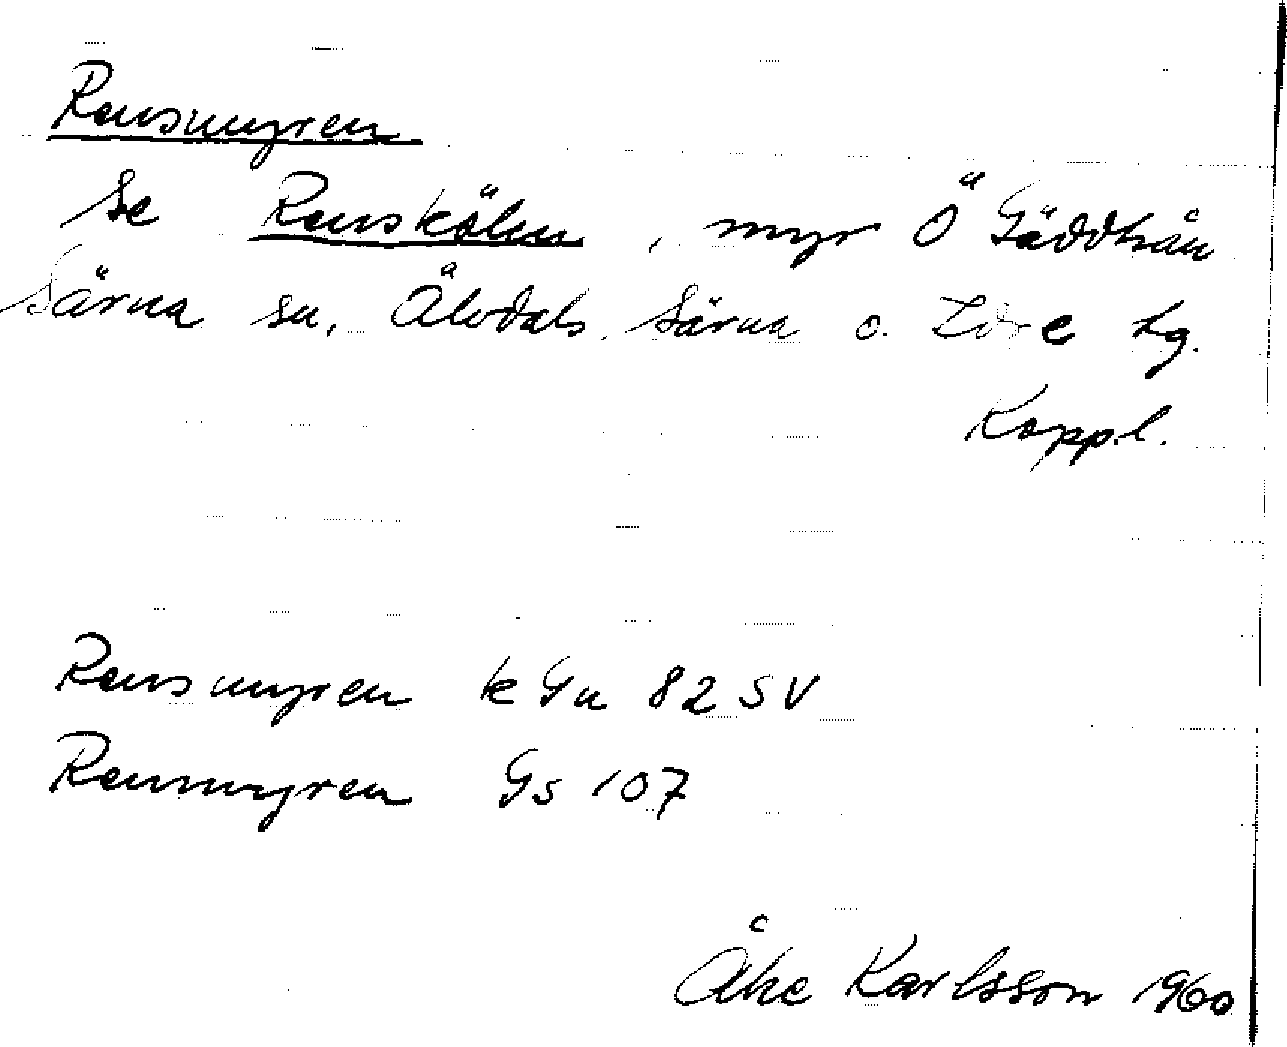 Rensmyren
se Renskölen, myr Ö Gäddtrån
Särna sn, Älvdals, Särna o. Idre tg.
Koppl.
Rensmyren k Gn 82 SV
Renmyren Gs 107
Åke Karlsson 1960